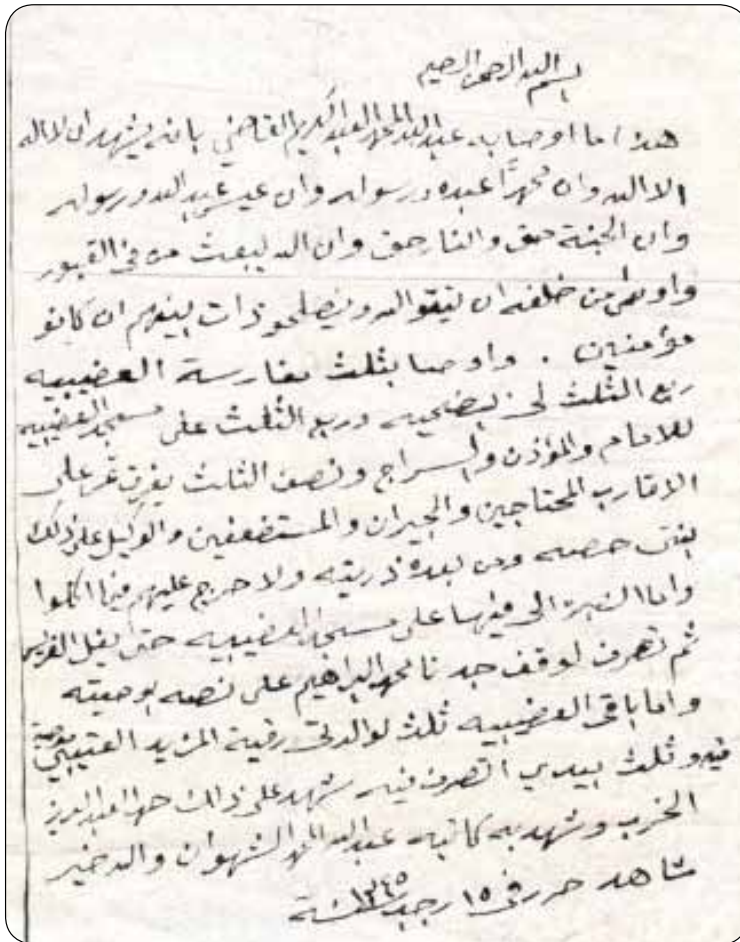 بسم الله الرحمن الرحيم
هذا ما اوصا به عبدالله المحمد العبدالكريم القاضي بانه يشهد ان لا اله
الا الله وان محمدًا عبده ورسوله وان عيسى عبدالله ورسوله
وان الجنة حق والنار حق وان الله يبعث من في القبور
واوصى من خلفه ان يتقو الله ويصلحو ذات بينهم ان كانو
مؤمنين . واوصا بثلث مغارسة العضيبيه
ربع الثلث لي بضحيه وربع الثلث على مسجد العضيبيه
للامام والمؤذن والسراج ونصف الثلث يفرق تمر على
الاقارب المحتاجين والجيران والمستضعفين والوكيل على ذلك
حصه ومن بعده ذريته ولا حرج عليهم فيما اكلوا
واما الى فيها على مسجد العضيبيه حتى يغل
ثم تصرف لوقف جدنا محمد البراهيم على نصه بوصيته
واما باقي العضيبيه ثلث لوالدتي رقية المزيد العتيبي
فيه وثلث بيدي اتصرف فيه شهد على ذالك حمد العبدالعزيز
الخرب وشهد به كاتبه عبدالله الشهوان والله خير
شاهد حرر في ١٥ رجب سنة ١٣٤٥